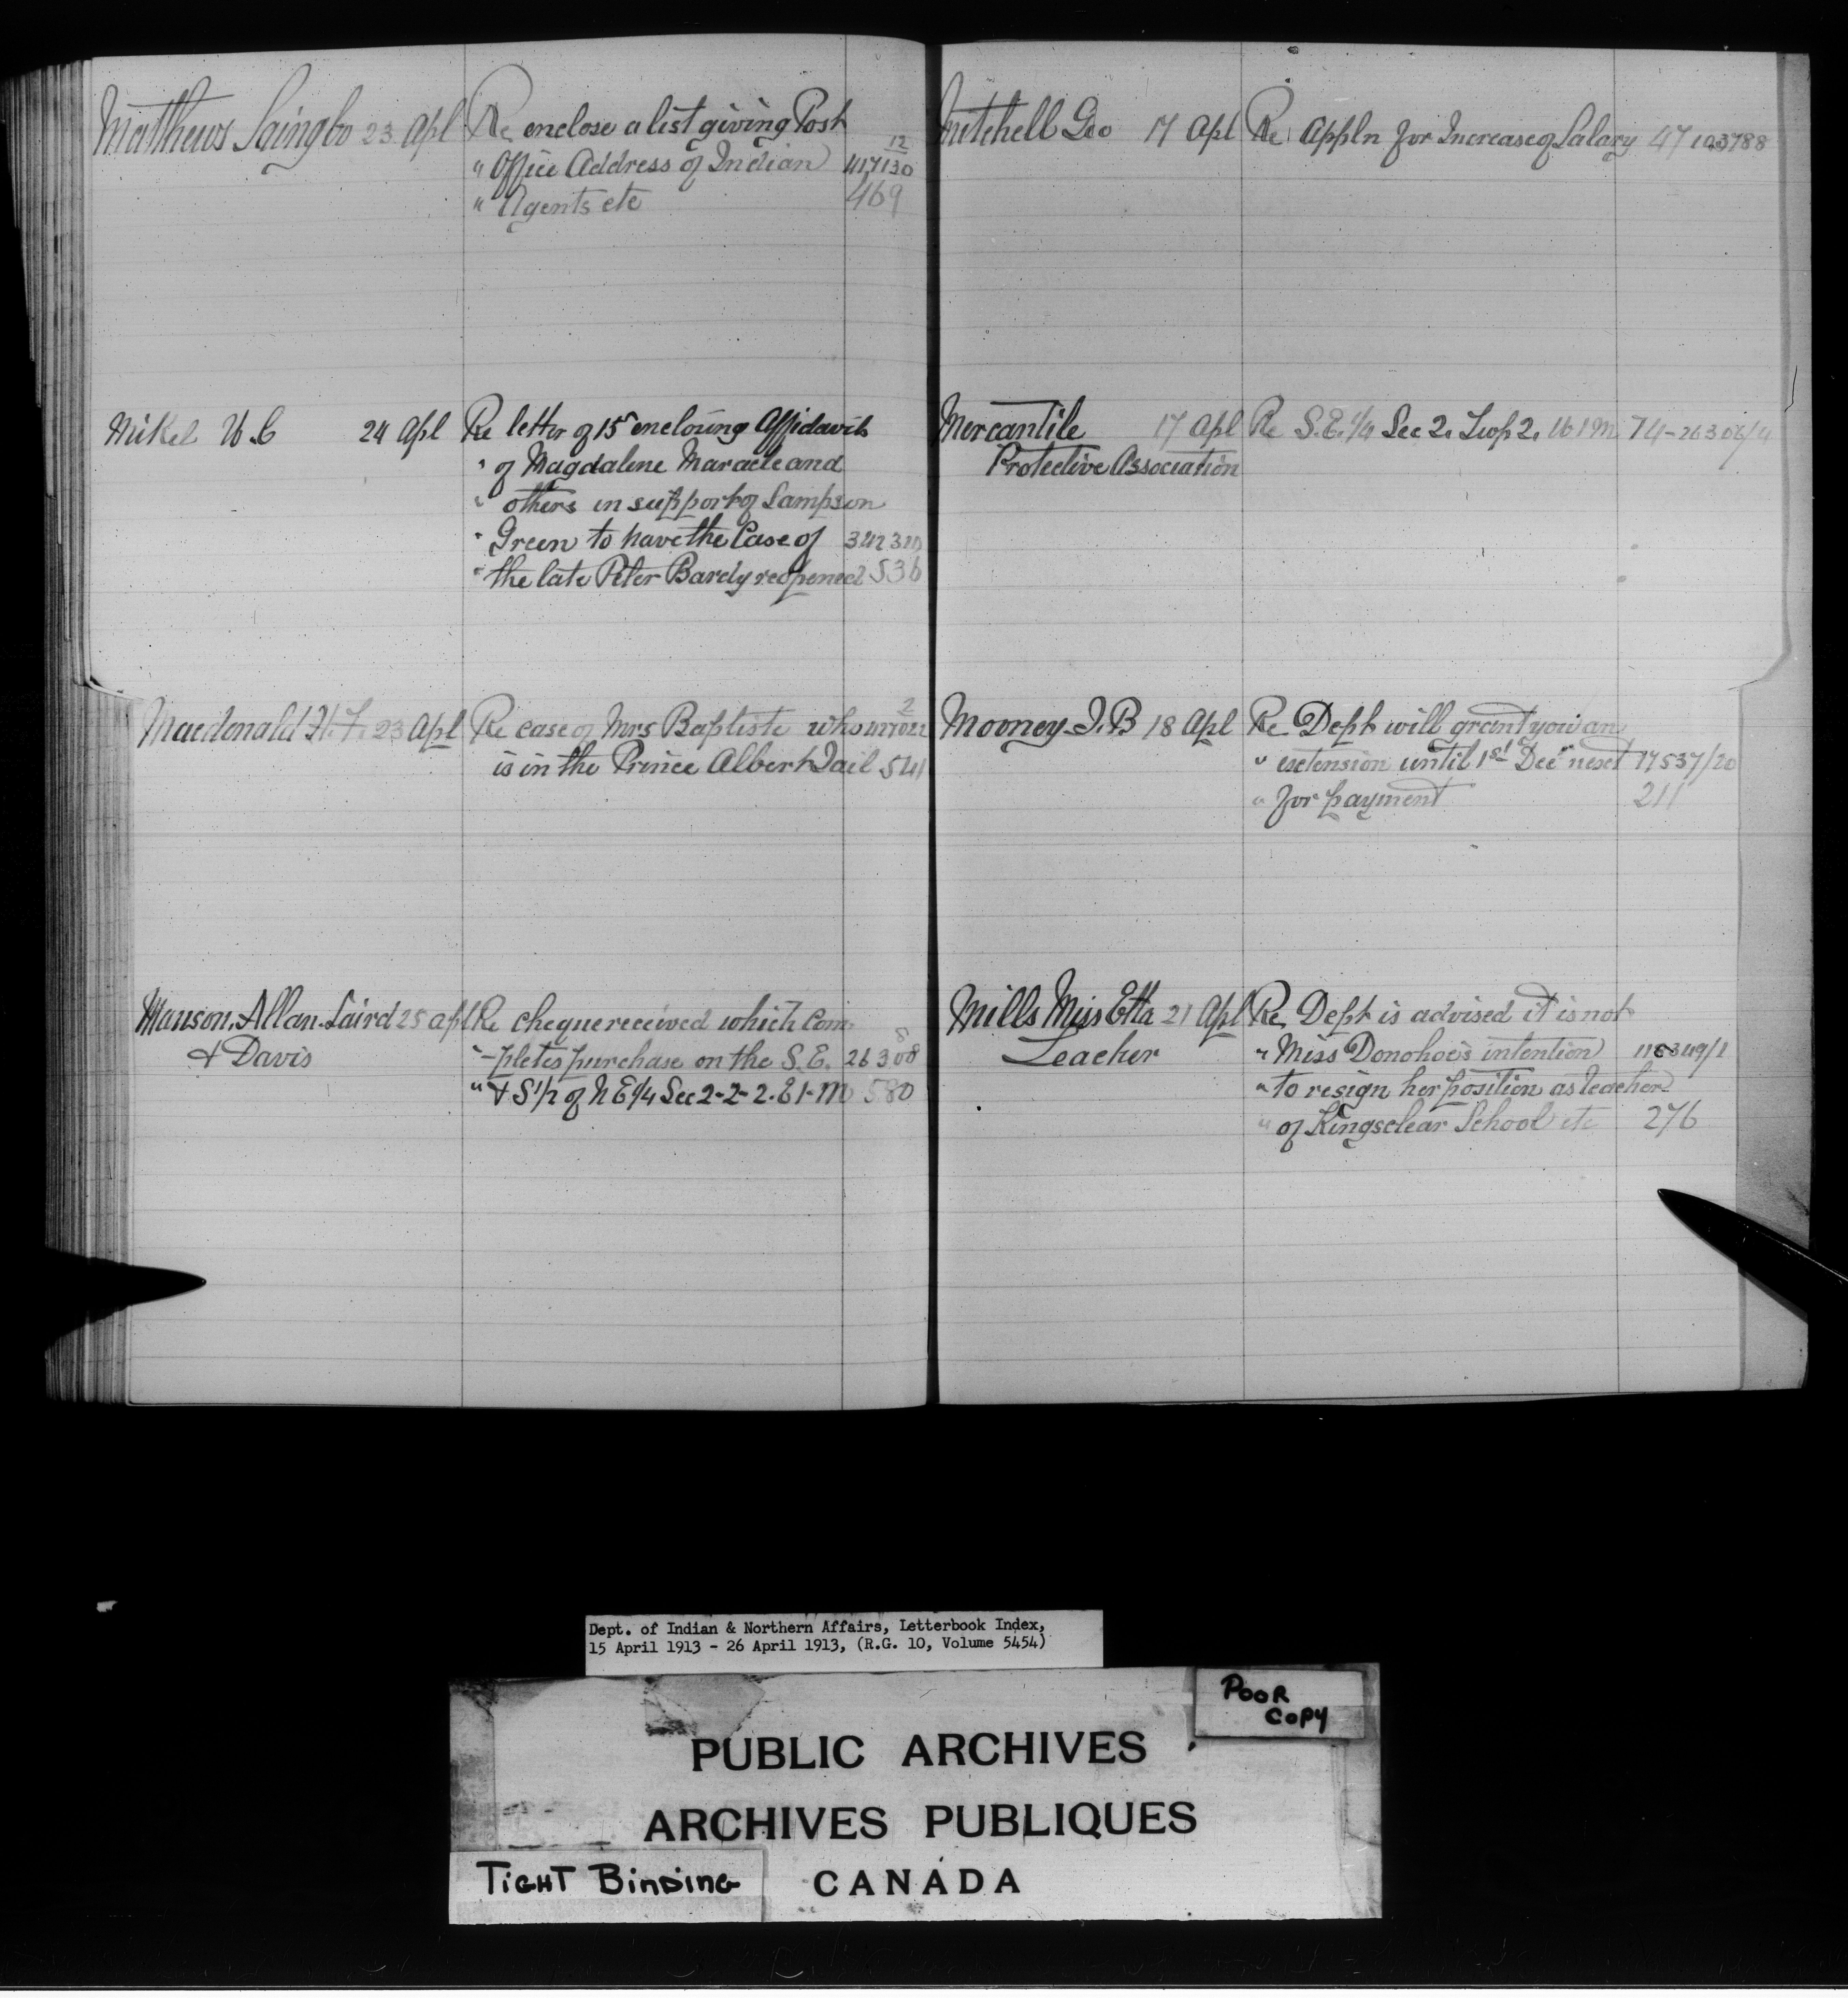 Matthews Saingbo 23 Apl Re enclose a list giving Post
" Office Address of Indian 12 417130
" Agents etc 469
Mikel W.C 24 Apl Re letter of 15 enclosing Affidavits
" of Magdalene Maracle and
" others in support of Sampson
" Green to have the Case of
" the late Peter Bardy reopened 536
Macdonald 23 Apl Re case of Mrs Baptiste who
is in the Prince Albert Jail 541
Manson. Allan. Laird 25 apl Re cheque received which Com
& Davis "-pletes purchase on the S.E. 26308
" & S1/2 of N E1/4 Sec 2-2-2. E1-M 580
Mitchell Geo 17 Apl Re Appln for Increase of Salary 47 103788
Mercantile 17 Apl Re S.E. 1/4 Sec 2. Twp 2. W 1 M 74-26306/4
Protective Association
Mooney J.B 18 Apl Re Dept will grant you an
" extension until 1st Dec next 17537/20
" for payment 211
Mills Miss Etta 21 Apl Re Dept is advised it is not
Teacher " Miss Donohoe's intention
" to resign her position as teacher
" of Kingsclear School etc 276
Dept. of Indian & Northern Affairs, Letterbook Index,
15 April 1913 - 26 April 1913, (R.G. 10, Volume 5454)
POOR
COPY
PUBLIC ARCHIVES
ARCHIVES PUBLIQUES
TIGHT BINDING
CANADA